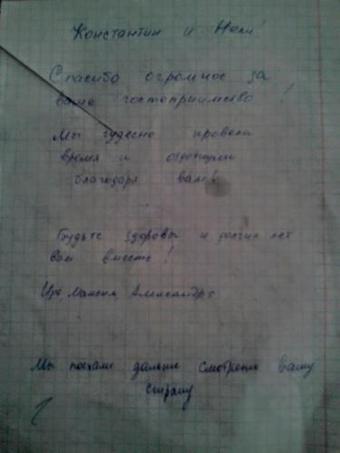 Константин и Нели!
Спасибо огромное за
ваше гостеприимство!
Мы чудесно провели
время и отдохнули
благодаря вам!
Будьте здоровы и долгих лет
вам вместе!
Максим Александра
Мы поехали дальше смотреть вашу
страну